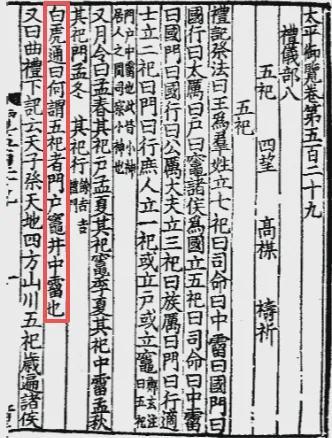 太平御覽卷第五百二十九
禮儀部八
五祀 四望 高禖 禱祈
五祀
禮記祭法曰王為羣姓立七祀曰司命曰中霤曰國門曰
國行曰太厲曰戶曰竈諸侯為國立五祀曰司命曰中霤
曰國門曰國行曰公厲大夫立三祀曰族厲曰門曰行適
士立二祀曰門曰行庶人立一祀或立戶或立竈
門戶中霤也此昔小神
居人之間司察小神也
又月令曰孟春其祀戶孟夏其祀竈季夏其祀中霤孟秋
其祀門孟冬其祀行
白虎通曰何謂五祀者門戶竈井中霤也
又曰曲禮下記云天子祭天地四方山川五祀歲遍諸侯